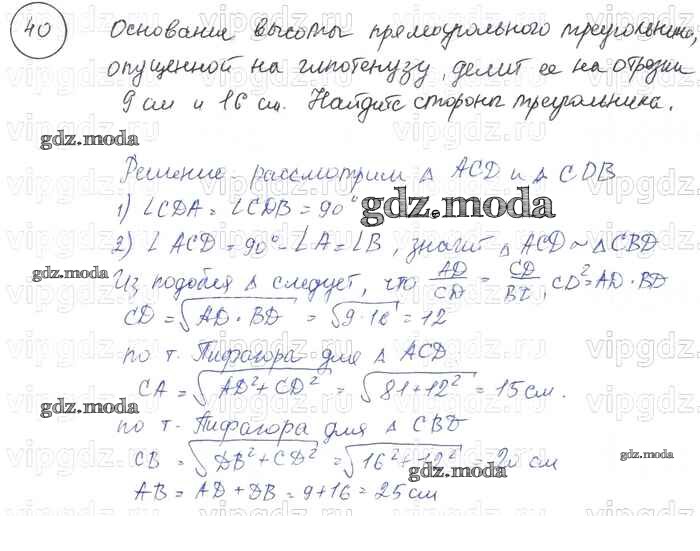 40 Основание высоты прямоугольного треугольника,
опущенной на гипотенузу, делит ее на отрезки
9 см и 16 см. Найдите стороны треугольника.
gdz.moda
Решение – рассмотрим Δ ACD и Δ CDB
1) ∠CDA = ∠CDB = 90°
gdz.moda
2) ∠ACD = 90° - ∠A = ∠B, значит Δ ACD ~ Δ CBD
gdz.moda
Из подобия Δ следует, что AD/CD = CD/BD, CD² = AD · BD
CD = √AD · BD = √9 · 16 = 12
по т. Пифагора для Δ ACD
CA = √AD² + CD² = √81 + 12² = 15 см.
gdz.moda
по т. Пифагора для Δ CBD
CB = √DB² + CD² = √16² + 12² = 20 см
gdz.moda
gdz.moda
AB = AD + DB = 9 + 16 = 25 см
vipgdz.ru